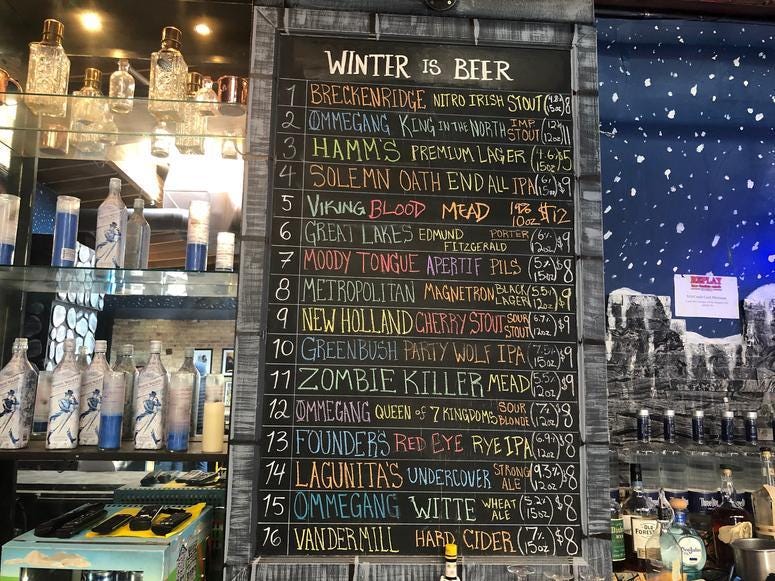 WINTER IS BEER
1 BRECKENRIDGE NITRO IRISH STOUT (4.8% 15oz) $8
2 ØMMEGANG KING IN THE NORTH IMP. STOUT 12oz $11
3 HAMM'S PREMIUM LAGER (4.6% 15oz) $5
4 SOLEMN OATH END ALL IPA $9
5 VIKING BLOOD MEAD 19% 10oz $12
6 GREAT LAKES EDMUND FITZGERALD PORTER (6% 12oz) $9
7 MOODY TONGUE APERTIF PILS (5% 15oz) $8
8 METROPOLITAN MAGNETRON BLACK LAGER (5.5% 12oz) $9
9 NEW HOLLAND CHERRY STOUT SOUR STOUT (6.7% 12oz) $9
10 GREENBUSH PARTY WOLF IPA 15oz $9
11 ZOMBIE KILLER MEAD (5.5% 12oz) $9
12 ØMMEGANG QUEEN OF 7 KINGDOMS SOUR BLONDE 12oz $8
13 FOUNDER'S RED EYE RYE IPA (6.9% 12oz) $8
14 LAGUNITA'S UNDERCOVER STRONG ALE 12oz $8
15 OMMEGANG WITTE WHEAT ALE (5.2% 15oz) $8
16 VANDERMILL HARD CIDER (7% 15oz) $8
REPLAY
OLD FORESTER